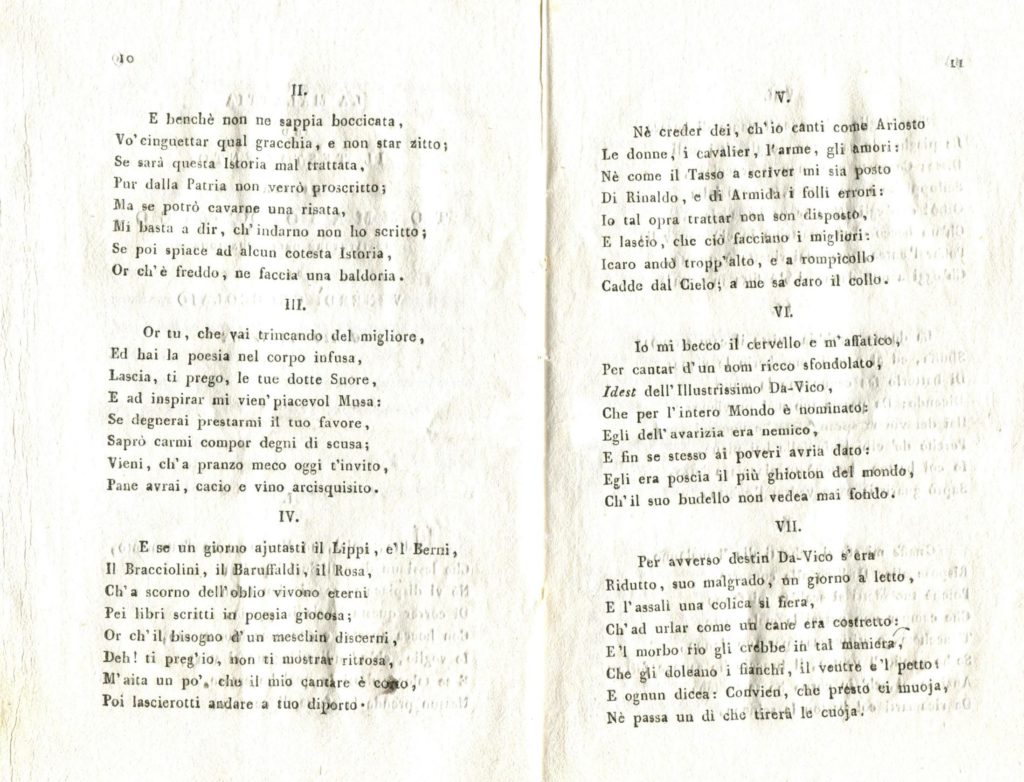 10
II.
E benchè non ne sappia boccicata,
Vo' cinguettar qual gracchia, e non star zitto;
Se sarà questa Istoria mal trattata,
Pur dalla Patria non verrò proscritto;
Ma se potrò cavarne una risata,
Mi basta a dir, ch'indarno non ho scritto;
Se poi spiace ad alcun cotesta Istoria,
Or ch'è freddo, ne faccia una baldoria.
III.
Or tu, che vai trincando del migliore,
Ed hai la poesia nel corpo infusa,
Lascia, ti prego, le tue dotte Suore,
E ad inspirar mi vien' piacevol Musa:
Se degnerai prestarmi il tuo favore,
Saprò carmi compor degni di scusa;
Vieni, ch'a pranzo meco oggi t'invito,
Pane avrai, cacio e vino arcisquisito.
IV.
E se un giorno ajutasti il Lippi, e'l Berni,
Il Bracciolini, il Baruffaldi, il Rosa,
Ch'a scorno dell'oblio vivono eterni
Pei libri scritti in poesia giocosa;
Or ch'il bisogno d'un meschin discerni,
Deh! ti preg'io, non ti mostrar ritrosa,
M'aita un po', che il mio cantare è corto,
Poi lascierotti andare a tuo diporto.
11
V.
Nè creder dei, ch'io canti come Ariosto
Le donne, i cavalier, l'arme, gli amori:
Nè come il Tasso a scriver mi sia posto
Di Rinaldo, e di Armida i folli errori:
Io tal opra trattar non son disposto,
E lascio, che ciò facciano i migliori:
Icaro andò tropp'alto, e a rompicollo
Cadde dal Cielo; a me sa caro il collo.
VI.
Io mi becco il cervello e m'affatico,
Per cantar d'un uom ricco sfondolato,
Idest dell'Illustrissimo Da-Vico,
Che per l'intero Mondo è nominato:
Egli dell'avarizia era nemico,
E fin se stesso ai poveri avria dato:
Egli era poscia il più ghiotton del mondo,
Ch'il suo budello non vedea mai fondo.
VII.
Per avverso destin Da-Vico s'era
Ridutto, suo malgrado, un giorno a letto,
E l'assalì una colica sì fiera,
Ch'ad urlar come un cane era costretto:
E'l morbo rio gli crebbe in tal maniera,
Che gli doleano i fianchi, il ventre e'l petto:
E ognun dicea: Convien, che presto ei muoja,
Nè passa un dì che tirerà le cuoja.